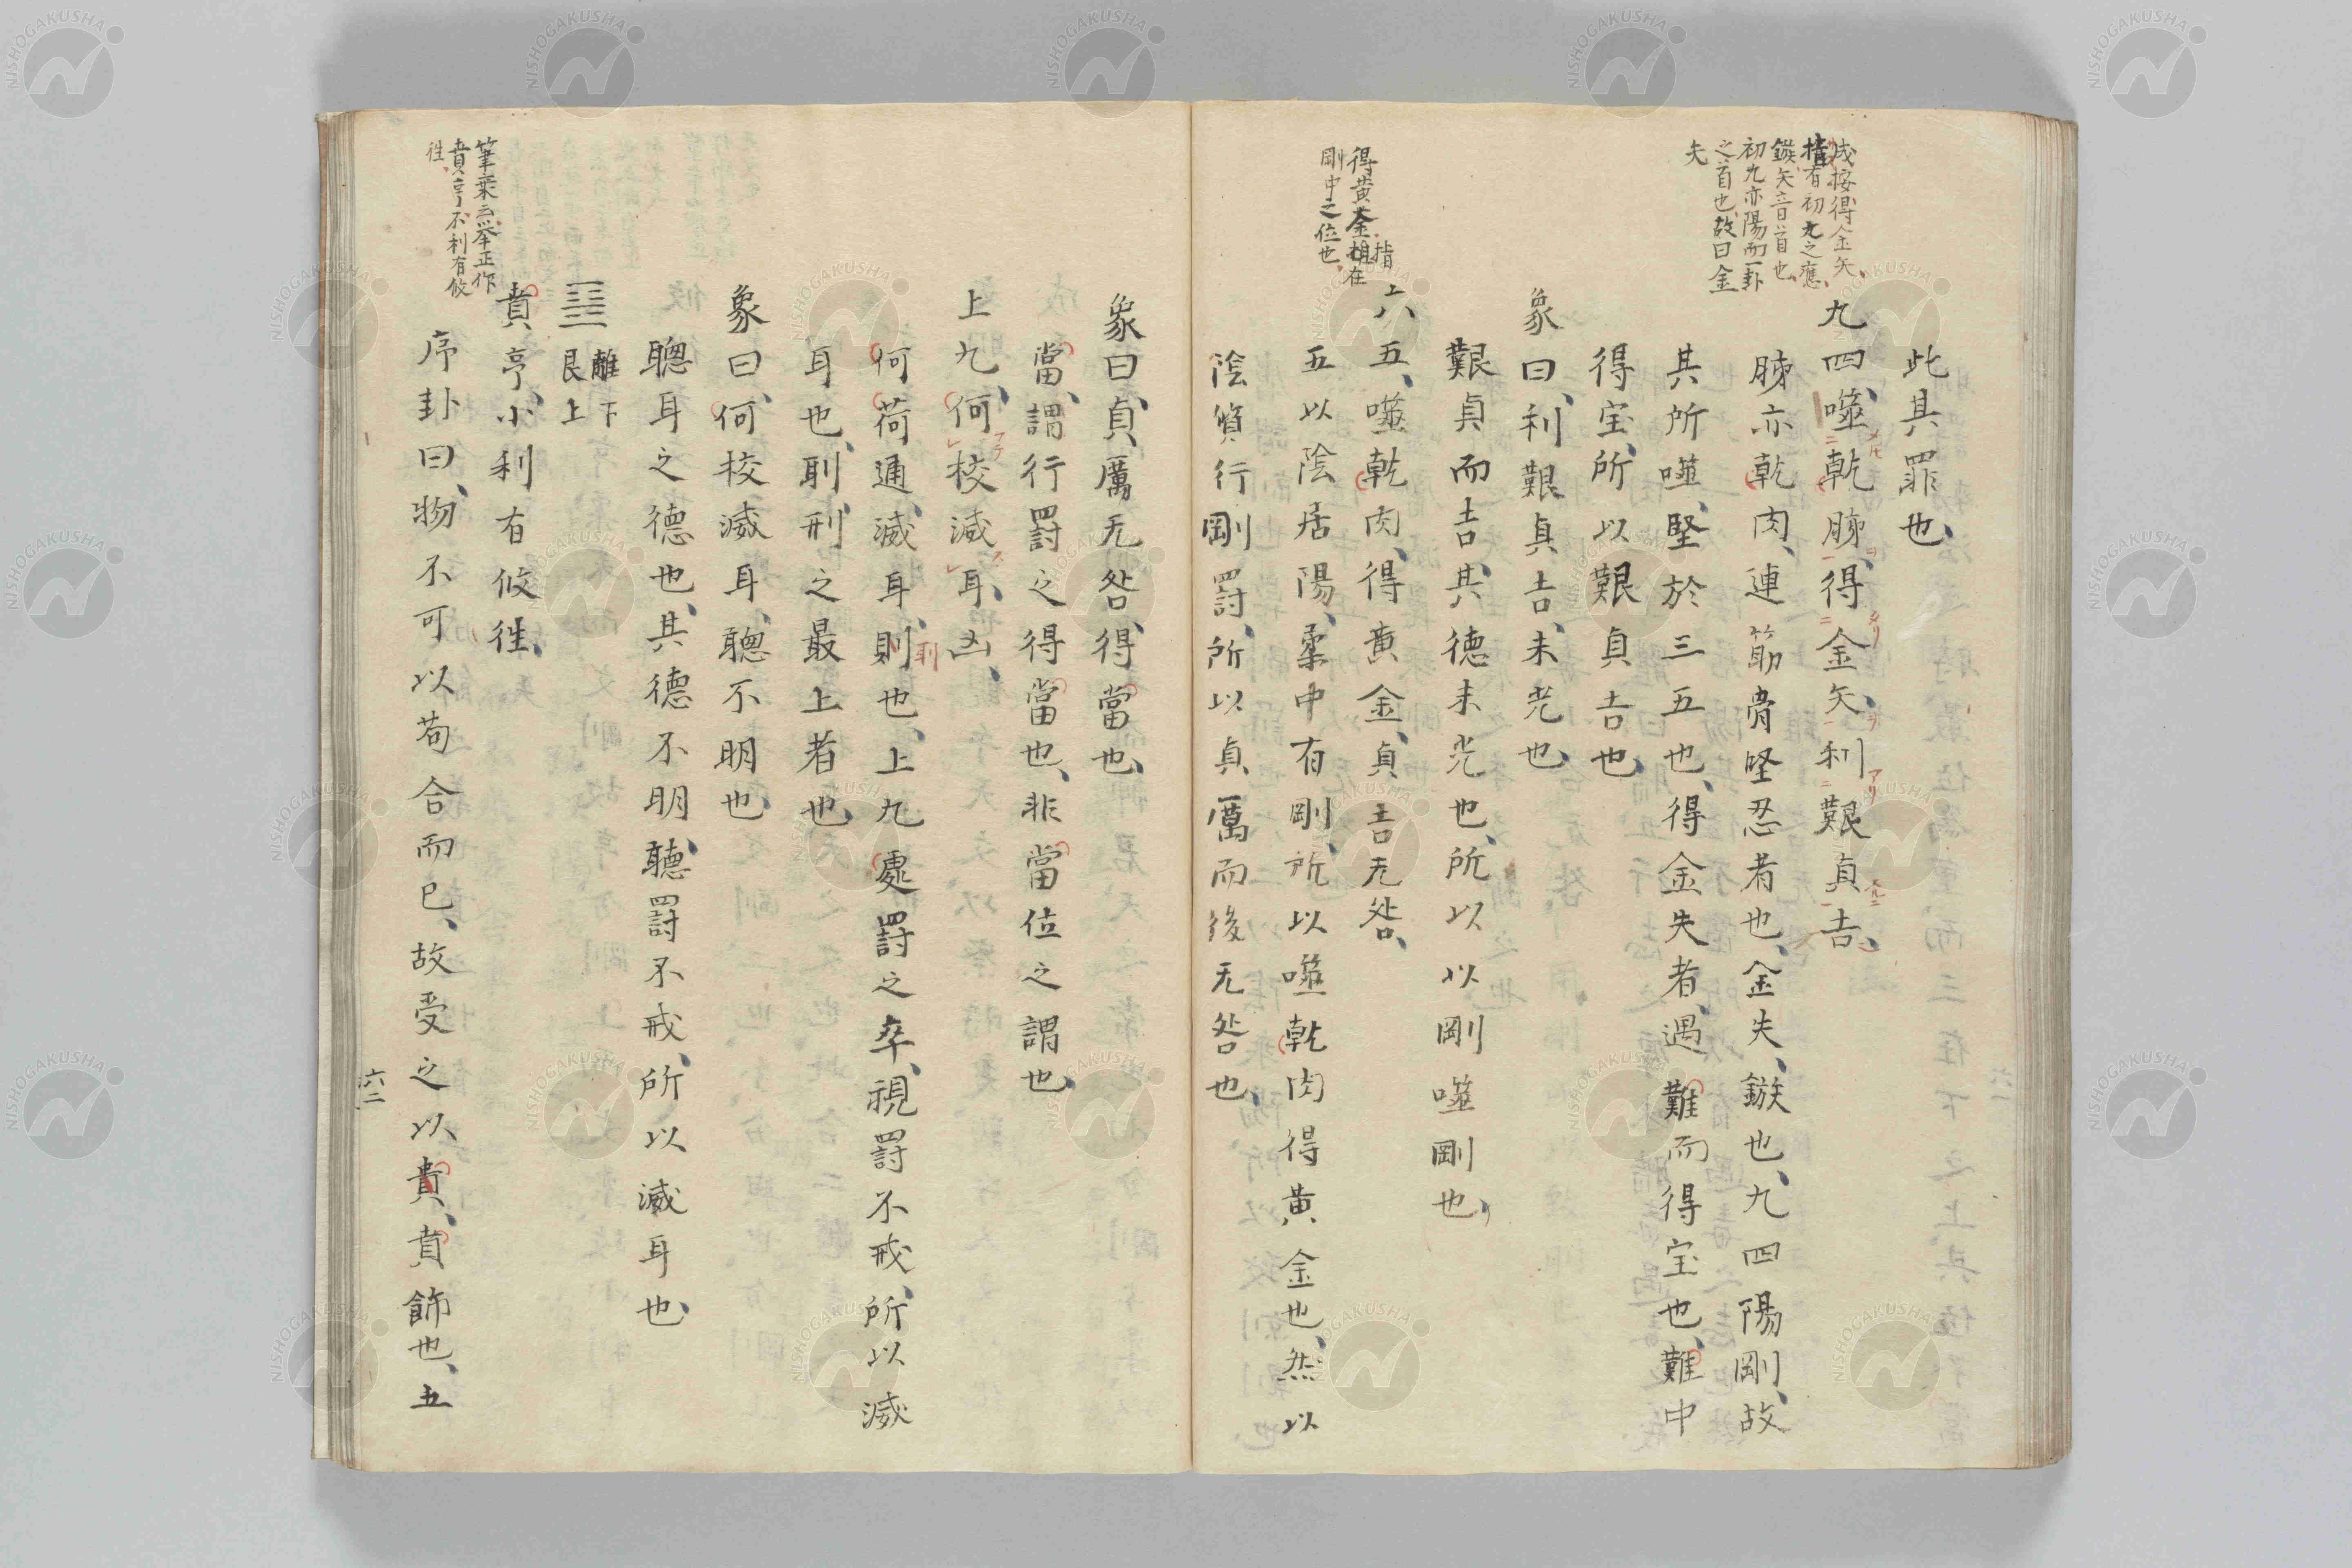 此其罪也、
九四、噬乾胏、得金矢、利艱貞吉、
胏亦乾肉、連筋骨堅忍者也、金失、鏃也、九四陽剛、故
其所噬、堅於三五也、得金失者、遇難而得宝也、難中
得宝、所以艱貞吉也、
象曰、利艱貞吉、未光也、
艱貞而吉、其徳未光也、所以以剛噬剛也、
六五、噬乾肉、得黄金、貞吉无咎、
五以陰居陽、柔中有剛、所以噬乾肉得黄金也、然以
陰質行剛罸、所以貞厲而後无咎也、
成按得金矢、
指有初九之應、
鏃矢音首也、
初九亦陽而卦
之首也、故曰金
矢
得黄金指在
剛中之位也、
象曰、貞厲无咎、得當也、
當、謂行罸之得當也、非當位之謂也、
上九、何校滅耳、凶、
何荷通、滅耳、則也、上九處罸之卒、視罸不戒、所以滅
刵
耳也、刵、刑之最上者也、
象曰、何校滅耳、聰不明也、
聰耳之德也、其德不明、聽罸不戒、所以滅耳也、
離下
艮上
賁、亨、小利有攸往、
序卦曰、物不可以苟合而已、故受之以賁、賁飾也、五
筆乘云、举正作
賁亨不利有攸
往、
六二